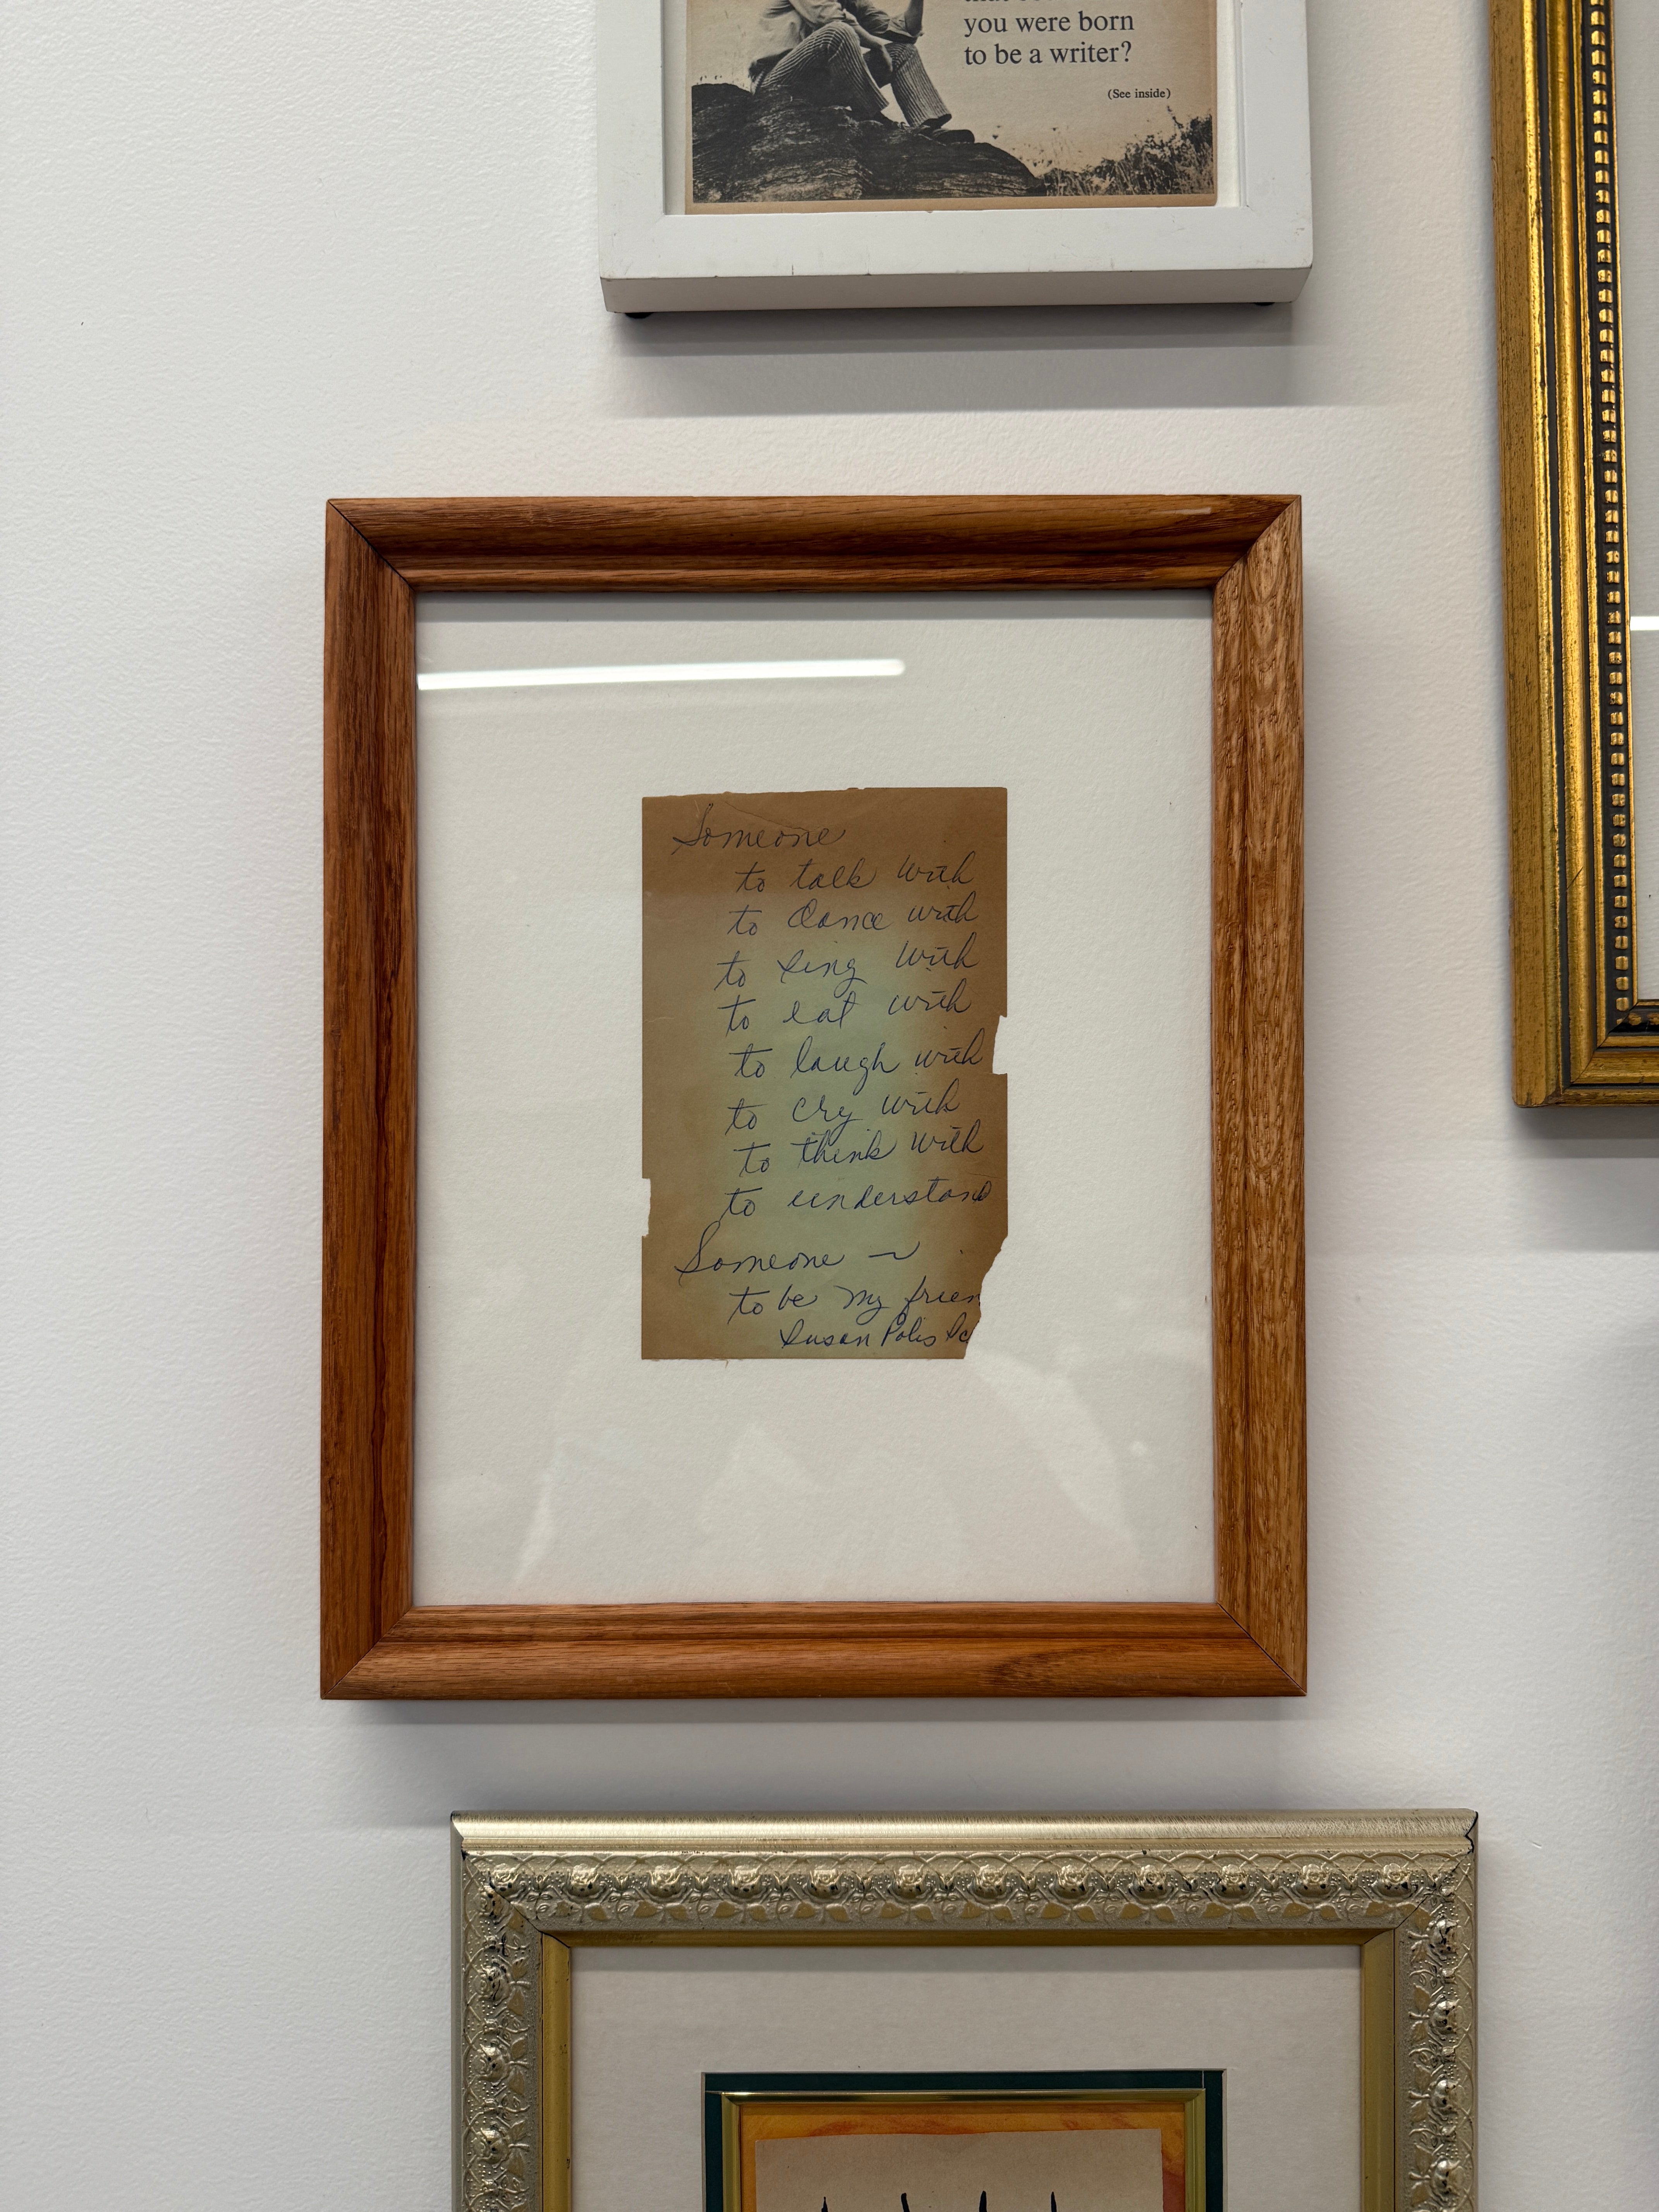 you were born
to be a writer?
(See inside)
Someone
to talk with
to dance with
to sing with
to eat with
to laugh with
to cry with
to think with
to understand
Someone ~
to be my frien
Susan Polis Sc